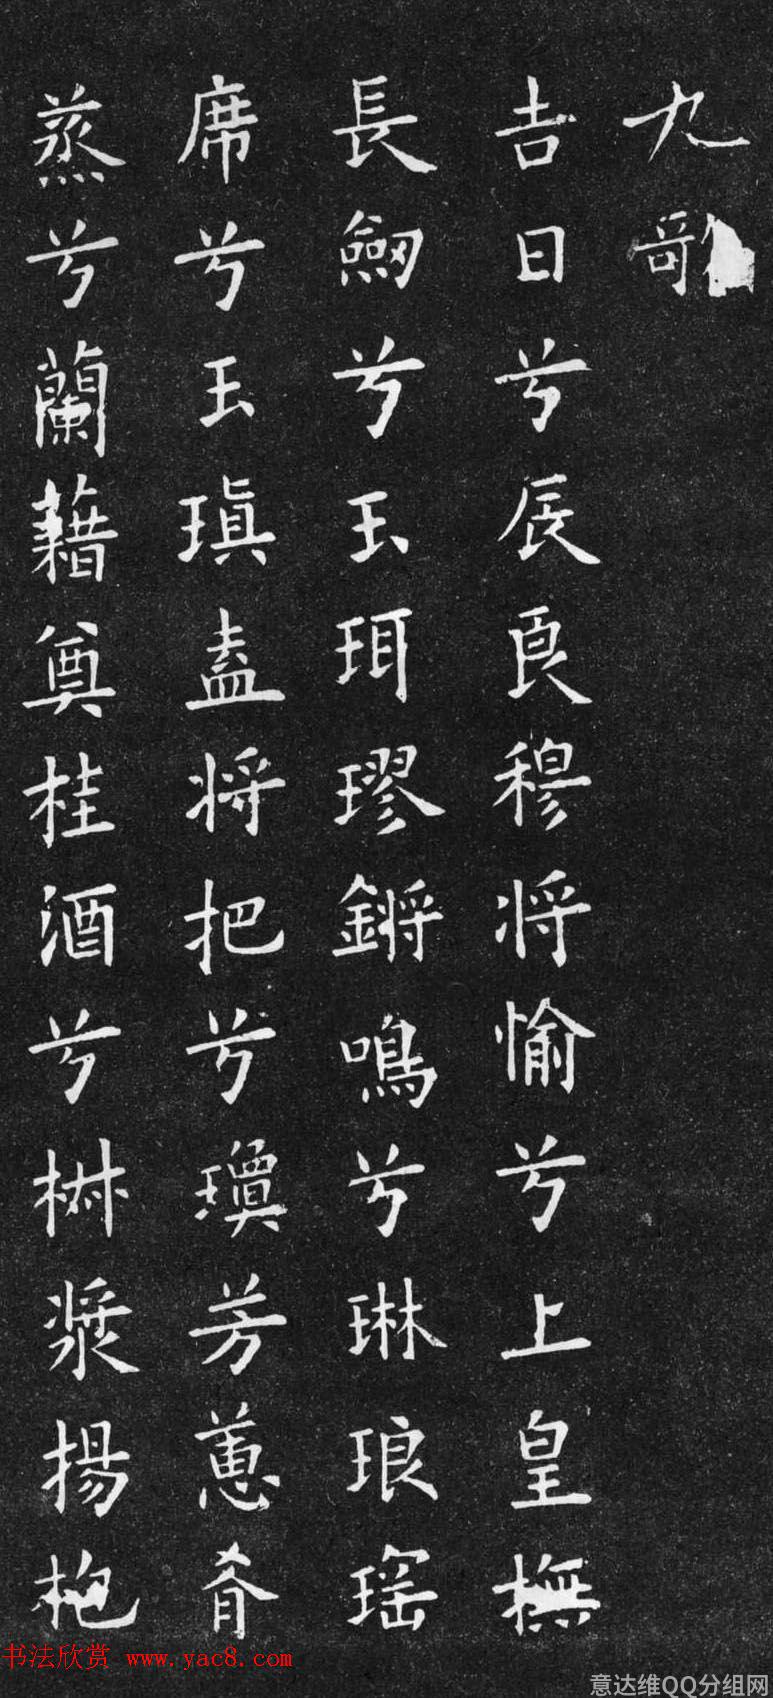 九歌
吉日兮辰良穆将愉兮上皇撫
長劒兮玉珥璆鏘鳴兮琳琅瑶
席兮玉瑱盍将把兮瓊芳蕙肴
蒸兮蘭藉奠桂酒兮椒漿揚枹
书法欣赏 www.yac8.com
意达维QQ分组网